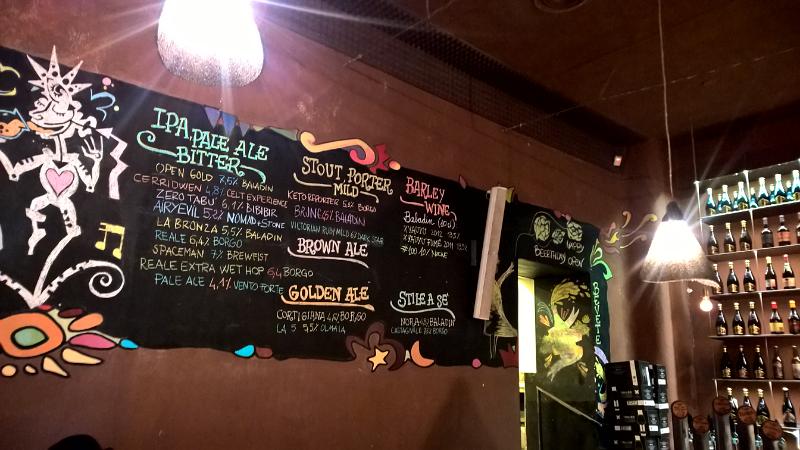 IPA, PALE ALE
BITTER
OPEN GOLD 7,5% BALADIN
CERRIDWEN 4,8% CELT EXPERIENCE
ZERO TABÙ 6,1% BIBIBIR
AIRYEVIL 5,2% NOMAD & STONE
LA BRONZA 5,5% BALADIN
REALE 6,4% BORGO
SPACEMAN 7% BREWFIST
REALE EXTRA WET HOP 6,4 BORGO
PALE ACE 4,1% VENTO FORTE
STOUT, PORTER
MILD
KETO REPORTER 5,2% BORGO
BRUNE 5% BALADIN
VICTORIAN RUBY MILD 6% DARK STAR
BROWN ALE
GOLDEN ALE
CORTIGIANA 4,6% BORGO
LA 5 5,5% OLMAIA
BARLEY
WINE
Baladin
XYAUYÙ 2012 13,5%
XYAUYÙ FUMÈ 2011 13,5%
STILE A SÈ
NORA 6,8% BALADIN
CASTAGNALE BORGO
HAPPY
OPEN